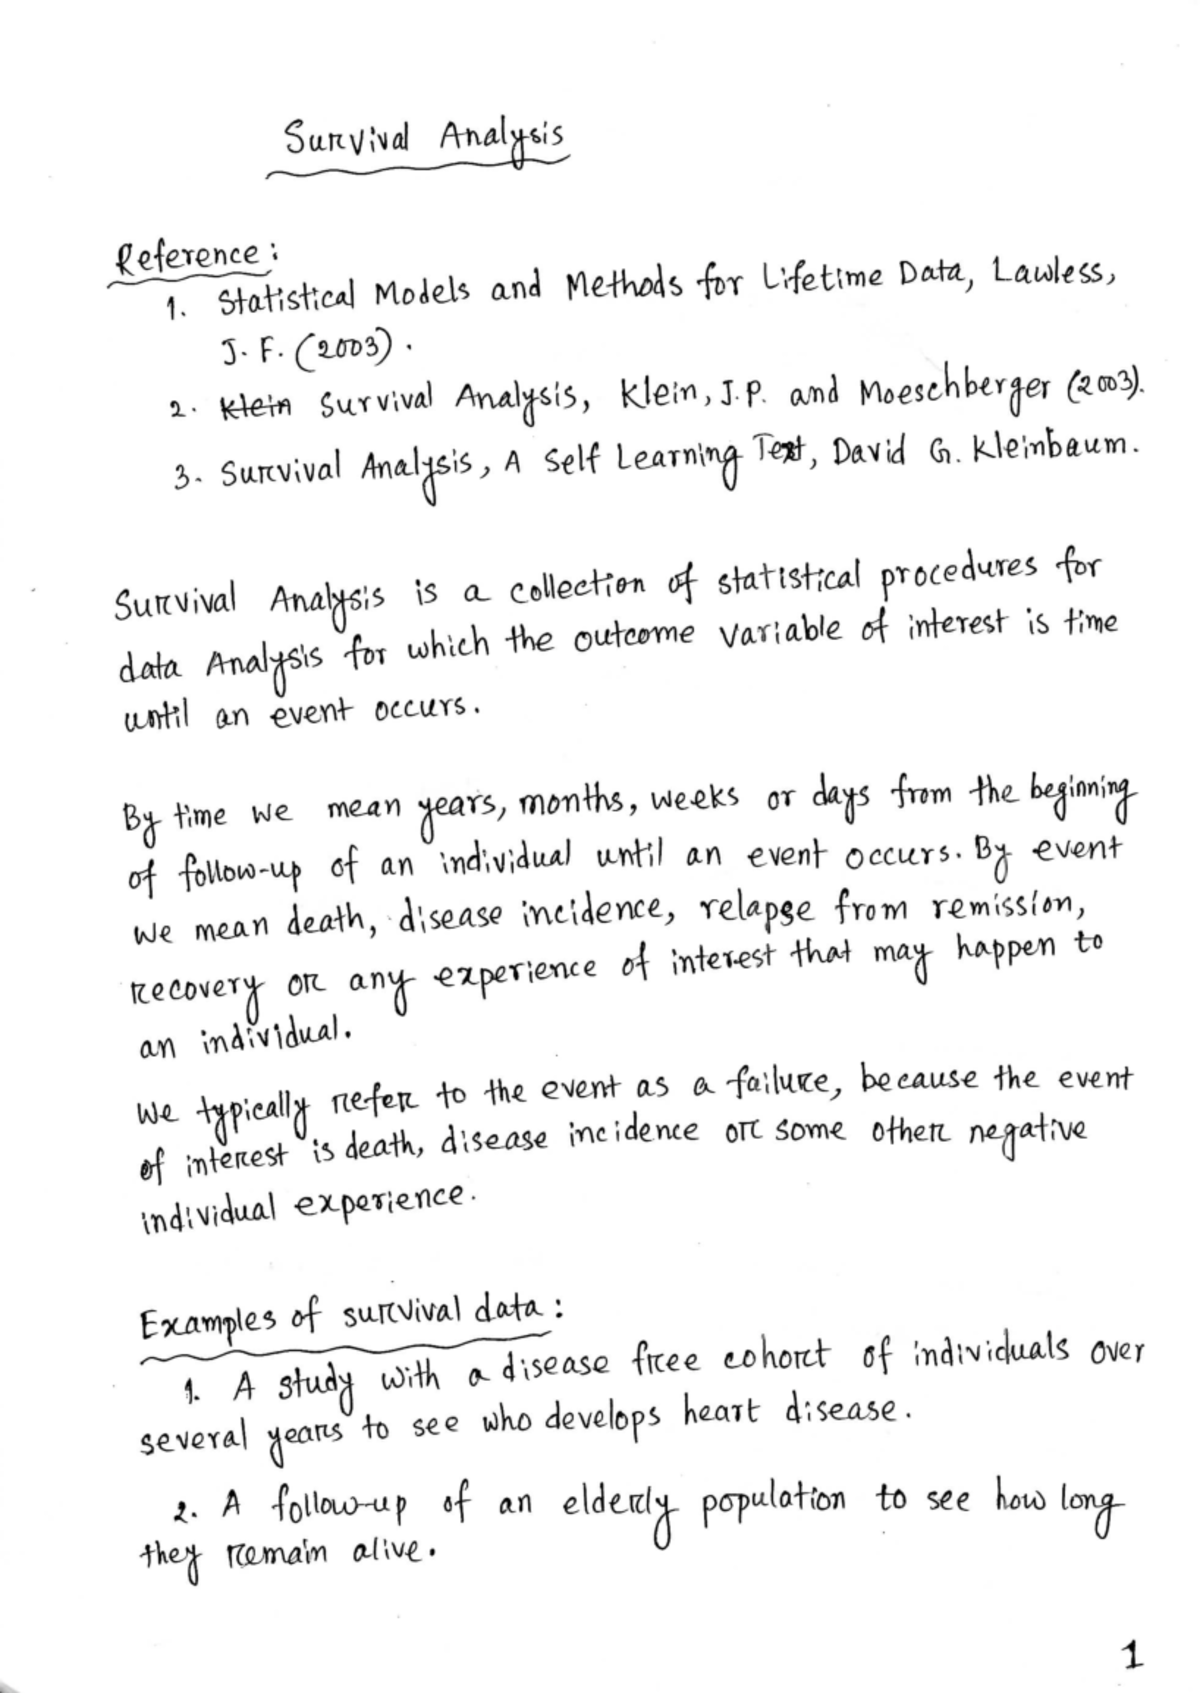 Survival Analysis
Reference:
1. Statistical Models and Methods for Lifetime Data, Lawless,
J. F. (2003).
2. Klein Survival Analysis, Klein, J.P. and Moeschberger (2003).
3. Survival Analysis, A Self Learning Text, David G. Kleinbaum.
Survival Analysis is a collection of statistical procedures for
data Analysis for which the outcome variable of interest is time
until an event occurs.
By time we mean years, months, weeks or days from the beginning
of follow-up of an individual until an event occurs. By event
we mean death, disease incidence, relapse from remission,
recovery or any experience of interest that may happen to
an individual.
We typically refer to the event as a failure, because the event
of interest is death, disease incidence or some other negative
individual experience.
Examples of survival data:
1. A study with a disease free cohort of individuals over
several years to see who develops heart disease.
2. A follow-up of an elderly population to see how long
they remain alive.
1